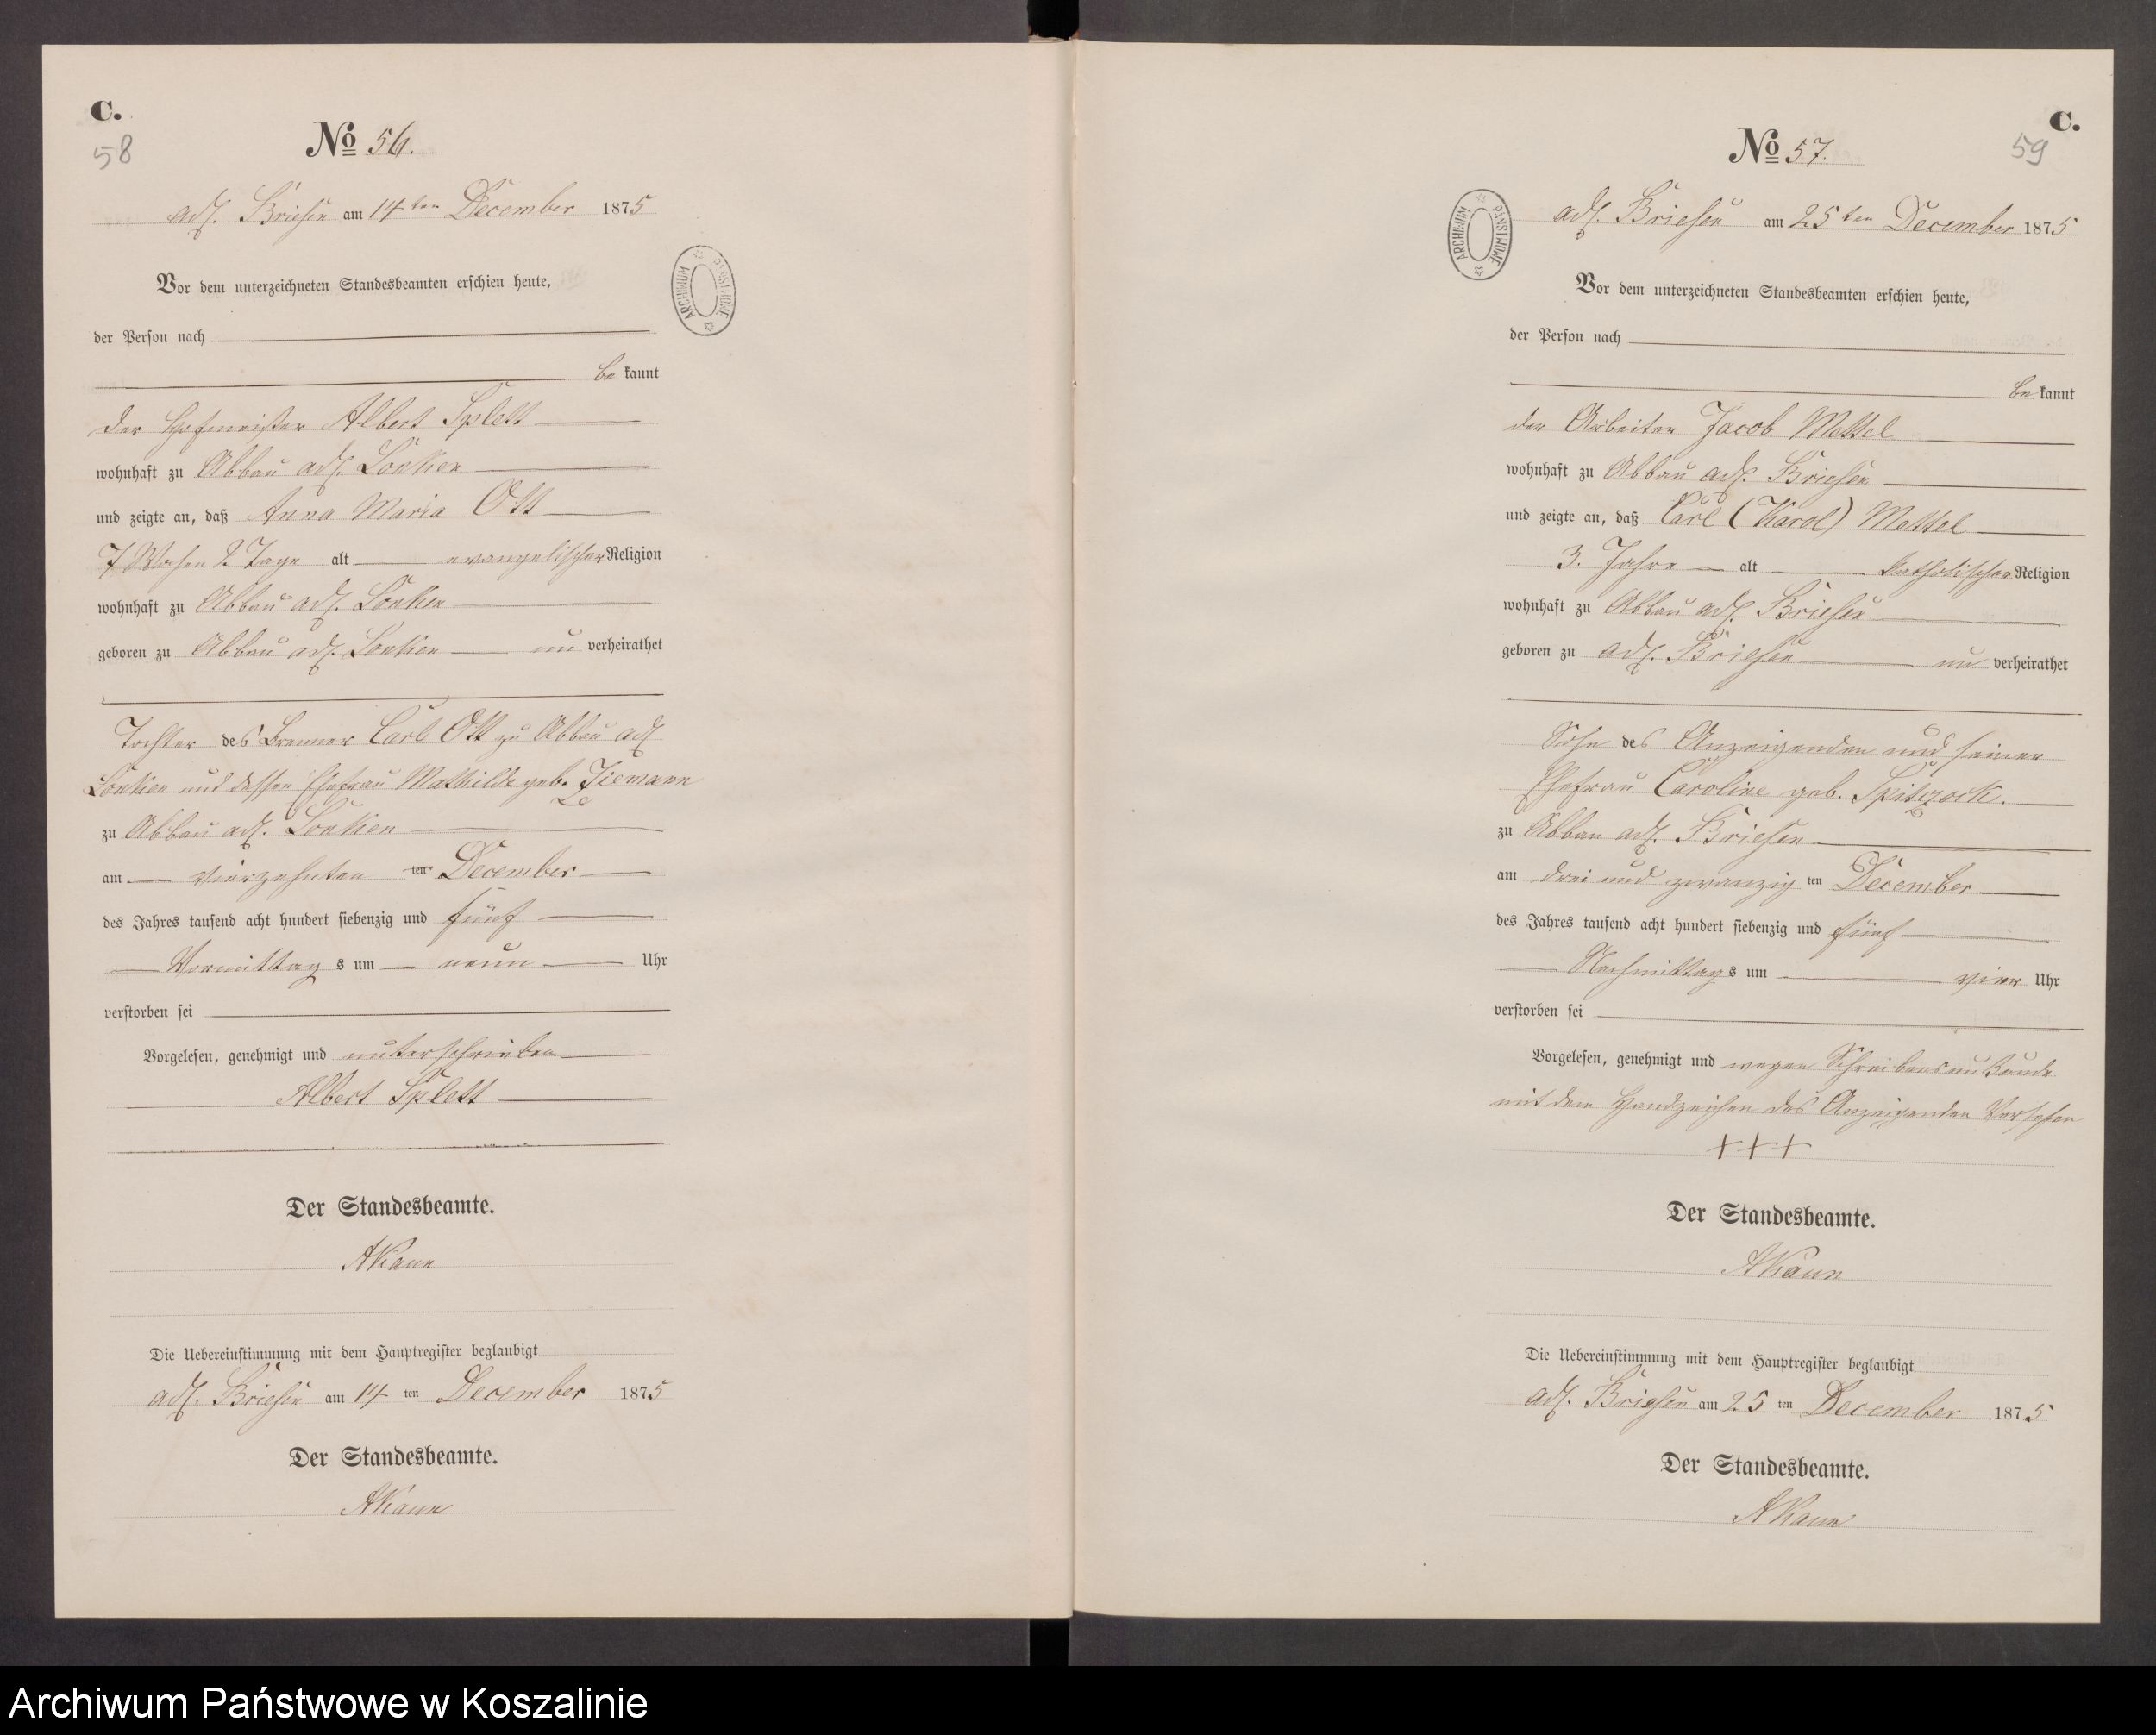 C.
58
No 56.
adl. Briesen am 14ten December 1875
Vor dem unterzeichneten Standesbeamten erschien heute,
der Person nach
bekannt
der Hofmeister Albert Splett
wohnhaft zu Abbau adl. Lonken
und zeigte an, daß Anna Maria Ott
7 Wochen 2 Tage alt evangelischer Religion
wohnhaft zu Abbau adl. Lonken
geboren zu Abbau adl. Lonken unverheirathet
Tochter des Brenner Carl Ott zu Abbau adl
Lonken und dessen Ehefrau Mathilde geb. Ziemann
zu Abbau adl. Lonken
am vierzehnten ten December
des Jahres tausend acht hundert siebenzig und fünf
Vormittags um neun Uhr
verstorben sei
Vorgelesen, genehmigt und unterschrieben
Albert Splett
Der Standesbeamte.
AKaun
Die Uebereinstimmung mit dem Hauptregister beglaubigt
adl. Briesen am 14 ten December 1875
Der Standesbeamte.
AKaun
ARCHIWUM PAŃSTWOWE
C.
59
No 57.
adl. Briesen am 25ten December 1875
Vor dem unterzeichneten Standesbeamten erschien heute,
der Person nach
bekannt
der Arbeiter Jacob Mettel
wohnhaft zu Abbau adl. Briesen
und zeigte an, daß Carl (Karol) Mettel
3. Jahre alt katholischer Religion
wohnhaft zu Abbau adl. Briesen
geboren zu adl. Briesen unverheirathet
Sohn des Anzeigenden und seiner
Ehefrau Caroline geb. Spitzock.
zu Abbau adl. Briesen
am drei und zwanzig ten December
des Jahres tausend acht hundert siebenzig und fünf
Nachmittags um vier Uhr
verstorben sei
Vorgelesen, genehmigt und wegen Schreibensunkunde
mit dem Handzeichen des Anzeigenden Versehen
+++
Der Standesbeamte.
AKaun
Die Uebereinstimmung mit dem Hauptregister beglaubigt
adl. Briesen am 25 ten December 1875
Der Standesbeamte.
AKaun
ARCHIWUM PAŃSTWOWE
Archiwum Państwowe w Koszalinie